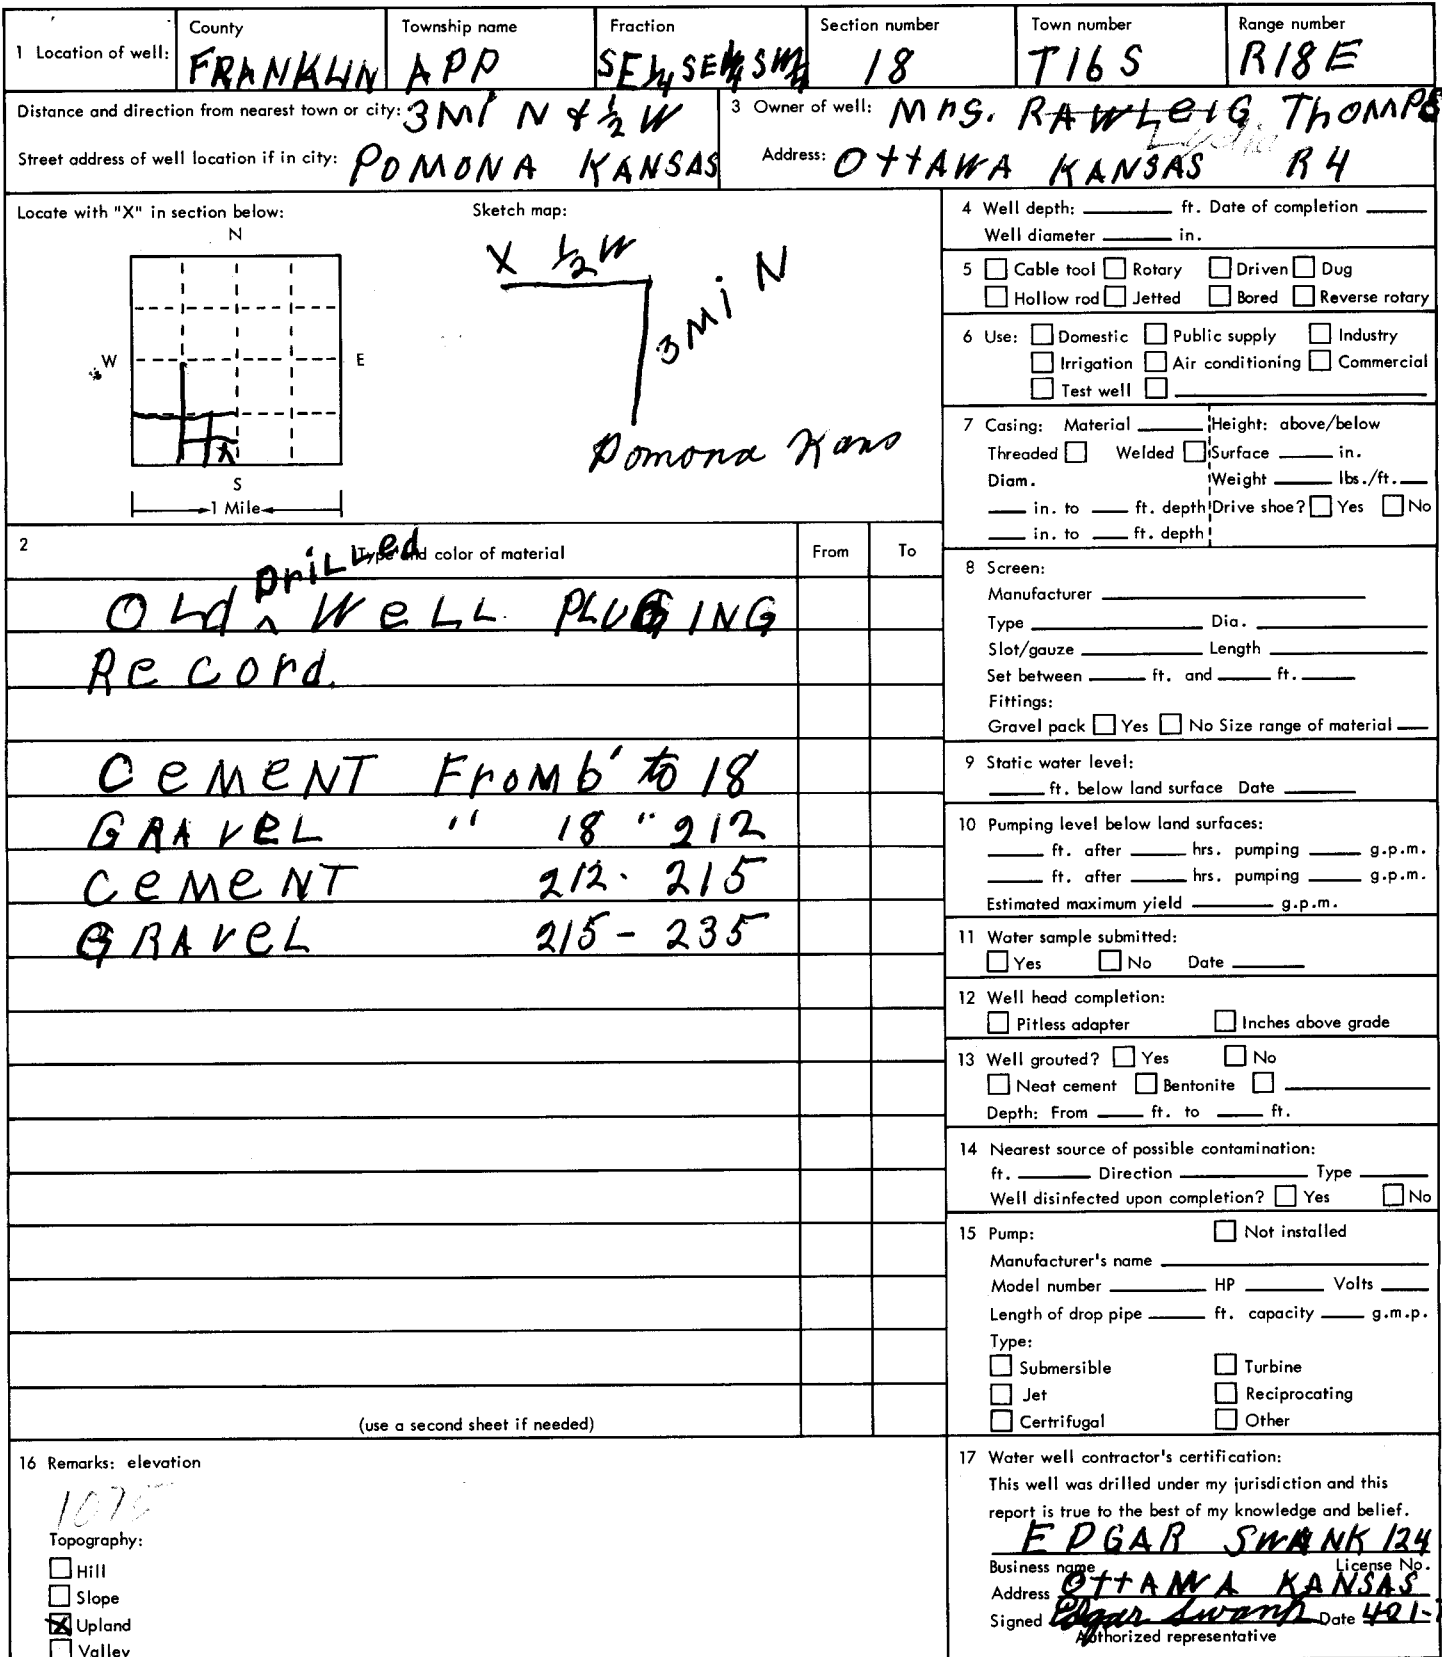 1 Location of well:
County
FRANKLIN
Township name
APP
Fraction
SE¼ SE¼ SW¼
Section number
18
Town number
T16S
Range number
R18E
Distance and direction from nearest town or city: 3 Mi N & ½ W
Street address of well location if in city: POMONA KANSAS
3 Owner of well: Mrs. RAWLEIG THOMPS
Lydia
Address: OTTAWA KANSAS R4
Locate with "X" in section below:
N
W E
S
1 Mile
Sketch map:
X ½ W
3 Mi N
Pomona Kans
2 Type and color of material From To
OLd ^ Drilled WeLL PLUGING
Record.
CEMENT From 6' to 18
GRAVEL " 18 " 212
CEMENT 212 - 215
GRAVEL 215 - 235
(use a second sheet if needed)
4 Well depth: ft. Date of completion
Well diameter in.
5 Cable tool Rotary Driven Dug
Hollow rod Jetted Bored Reverse rotary
6 Use: Domestic Public supply Industry
Irrigation Air conditioning Commercial
Test well
7 Casing: Material Height: above/below
Threaded Welded Surface in.
Diam. Weight lbs./ft.
in. to ft. depth Drive shoe? Yes No
in. to ft. depth
8 Screen:
Manufacturer
Type Dia.
Slot/gauze Length
Set between ft. and ft.
Fittings:
Gravel pack Yes No Size range of material
9 Static water level:
ft. below land surface Date
10 Pumping level below land surfaces:
ft. after hrs. pumping g.p.m.
ft. after hrs. pumping g.p.m.
Estimated maximum yield g.p.m.
11 Water sample submitted:
Yes No Date
12 Well head completion:
Pitless adapter Inches above grade
13 Well grouted? Yes No
Neat cement Bentonite
Depth: From ft. to ft.
14 Nearest source of possible contamination:
ft. Direction Type
Well disinfected upon completion? Yes No
15 Pump: Not installed
Manufacturer's name
Model number HP Volts
Length of drop pipe ft. capacity g.m.p.
Type:
Submersible Turbine
Jet Reciprocating
Certrifugal Other
16 Remarks: elevation
1075
Topography:
Hill
Slope
X Upland
Valley
17 Water well contractor's certification:
This well was drilled under my jurisdiction and this
report is true to the best of my knowledge and belief.
EDGAR SWANK 124
Business name License No.
Address OTTAWA KANSAS
Signed Edgar Swank Date
Authorized representative